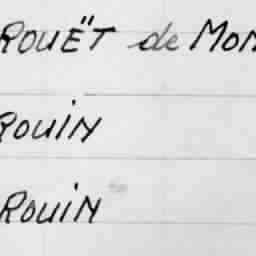 ROUËT de MON
ROUIN
ROUIN